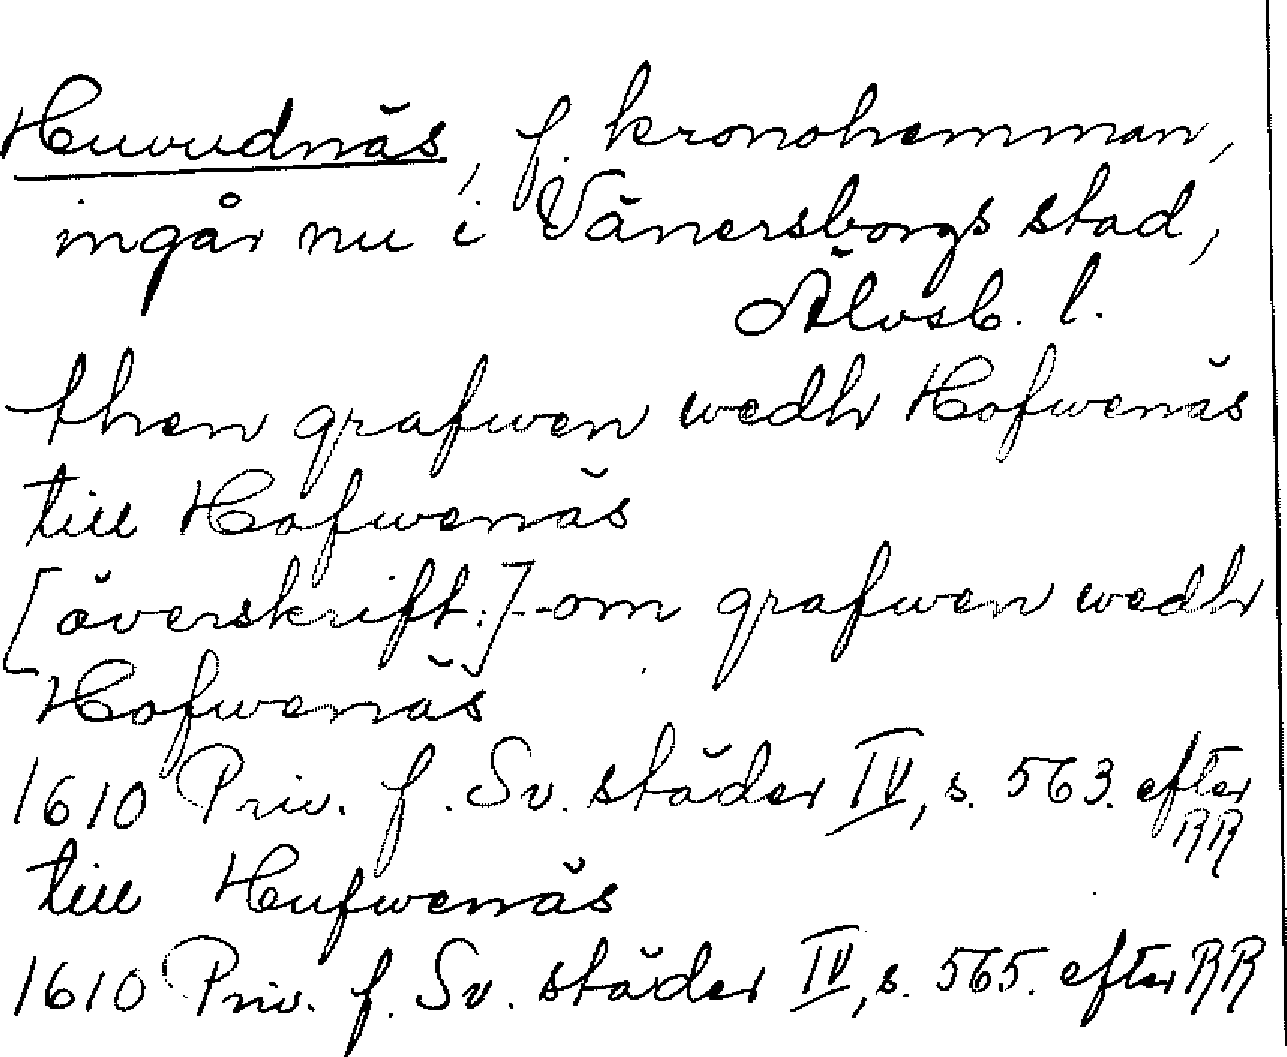 Huvudnäs, f. kronohemman,
ingår nu i Vänersborgs stad,
Älvsb. l.
then grafwen wedh Hofwenäs
till Hofwenäs
[överskrift:] om grafwen wedh
Hofwenäs
1610 Priv. f. Sv. städer IV, s. 563. efter
RR
till Hufwenäs
1610 Priv. f. Sv. städer IV, s. 565. efter RR